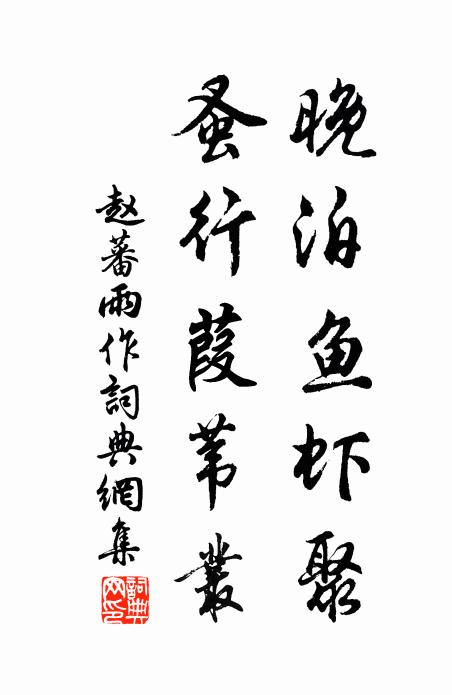 晚泊鱼虾聚
蚤行葭苇叢
赵蕃雨作詞典網集
詞典网印